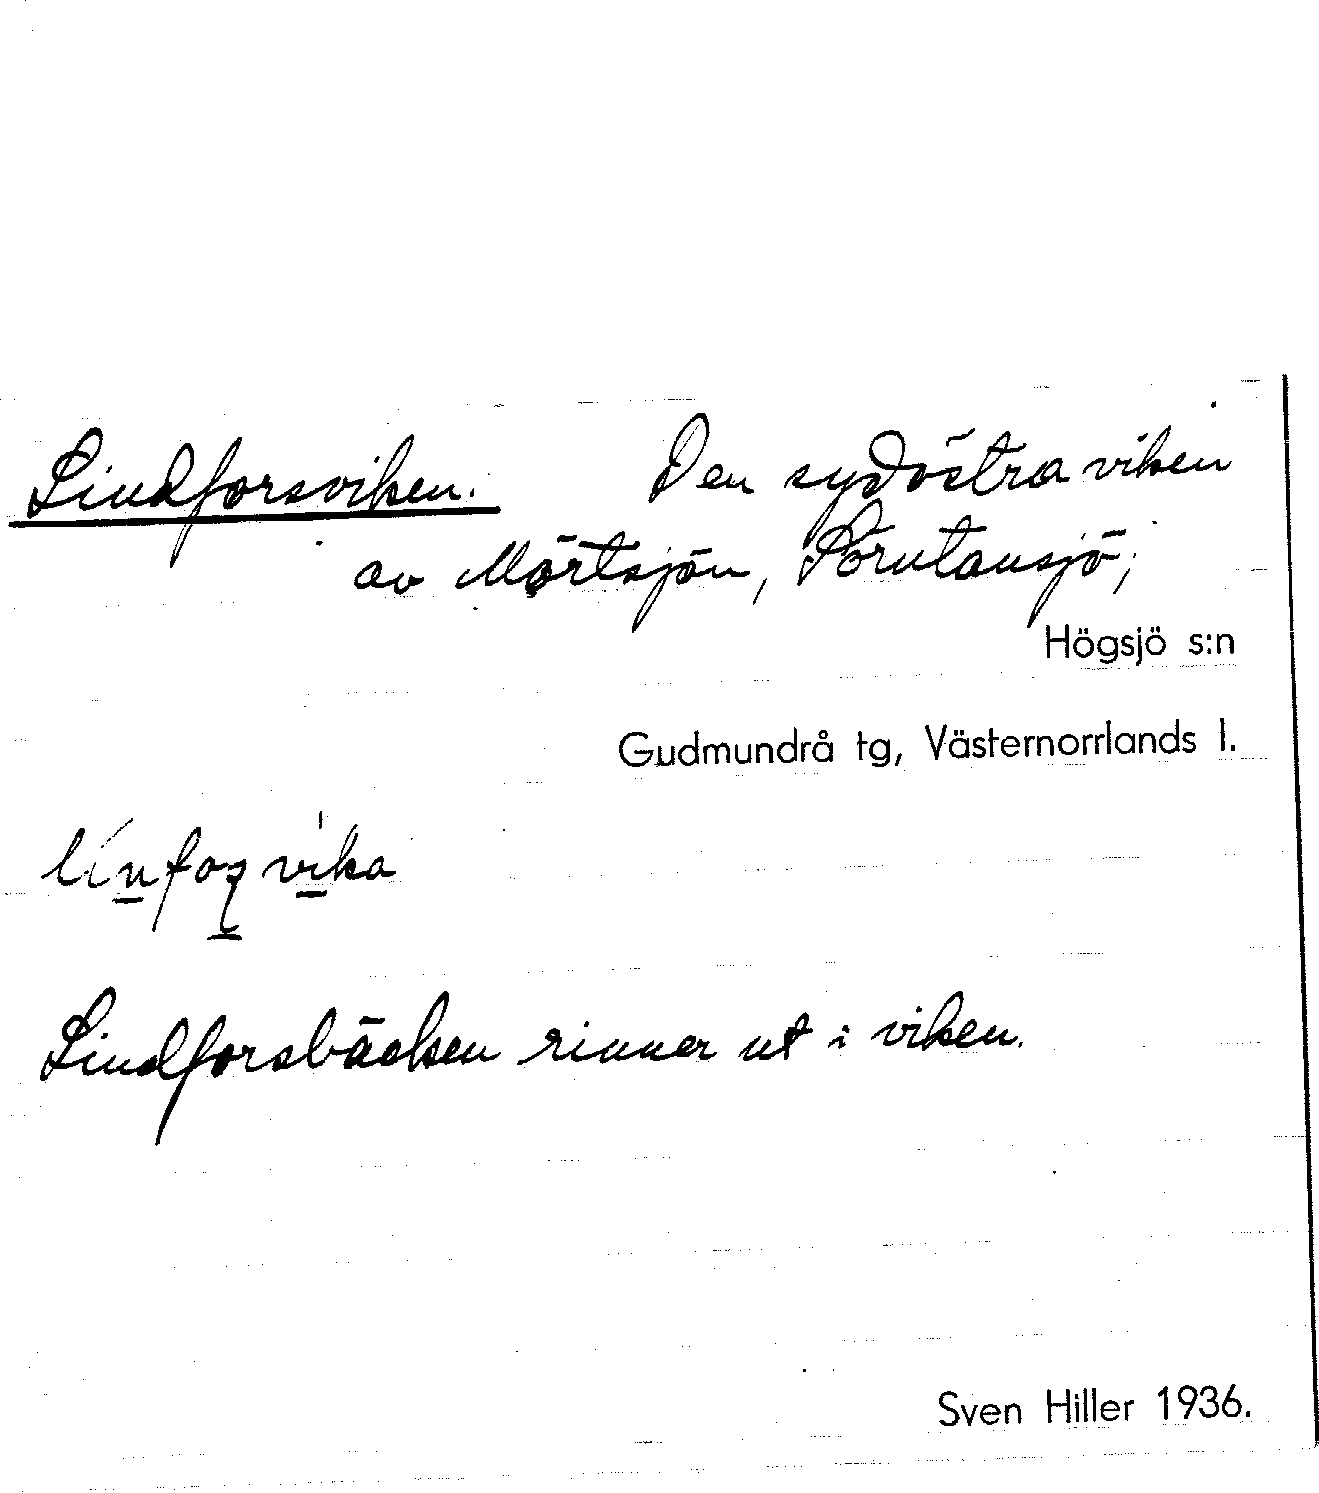 Lindforsviken. Den sydöstra viken
av Mörtsjön, Sörutansjö;
Högsjö s:n
Gudmundrå tg, Västernorrlands l.
vika
Lindforsbäcken rinner ut i viken.
Sven Hiller 1936.